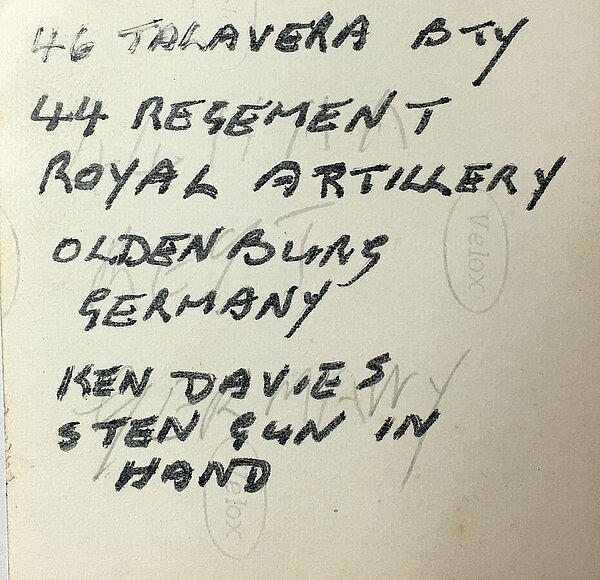 46 TALAVERA BTY
44 REGEMENT
ROYAL ARTILLERY
OLDENBURG
GERMANY
KEN DAVIES
STEN GUN IN
HAND
Velox
Velox